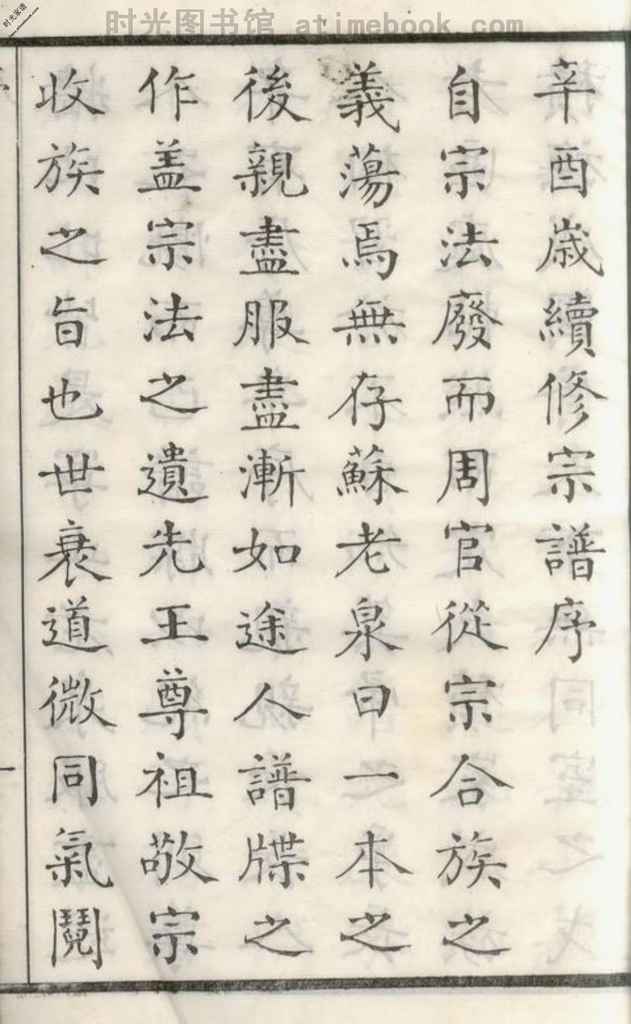 时光图书馆 atimebook.com
时光家谱
辛酉歲續修宗譜序
自宗法廢而周官從宗合族之
義蕩焉無存蘇老泉曰一本之
後親盡服盡漸如途人譜牒之
作盖宗法之遺先王尊祖敬宗
收族之旨也世衰道微同氣鬩